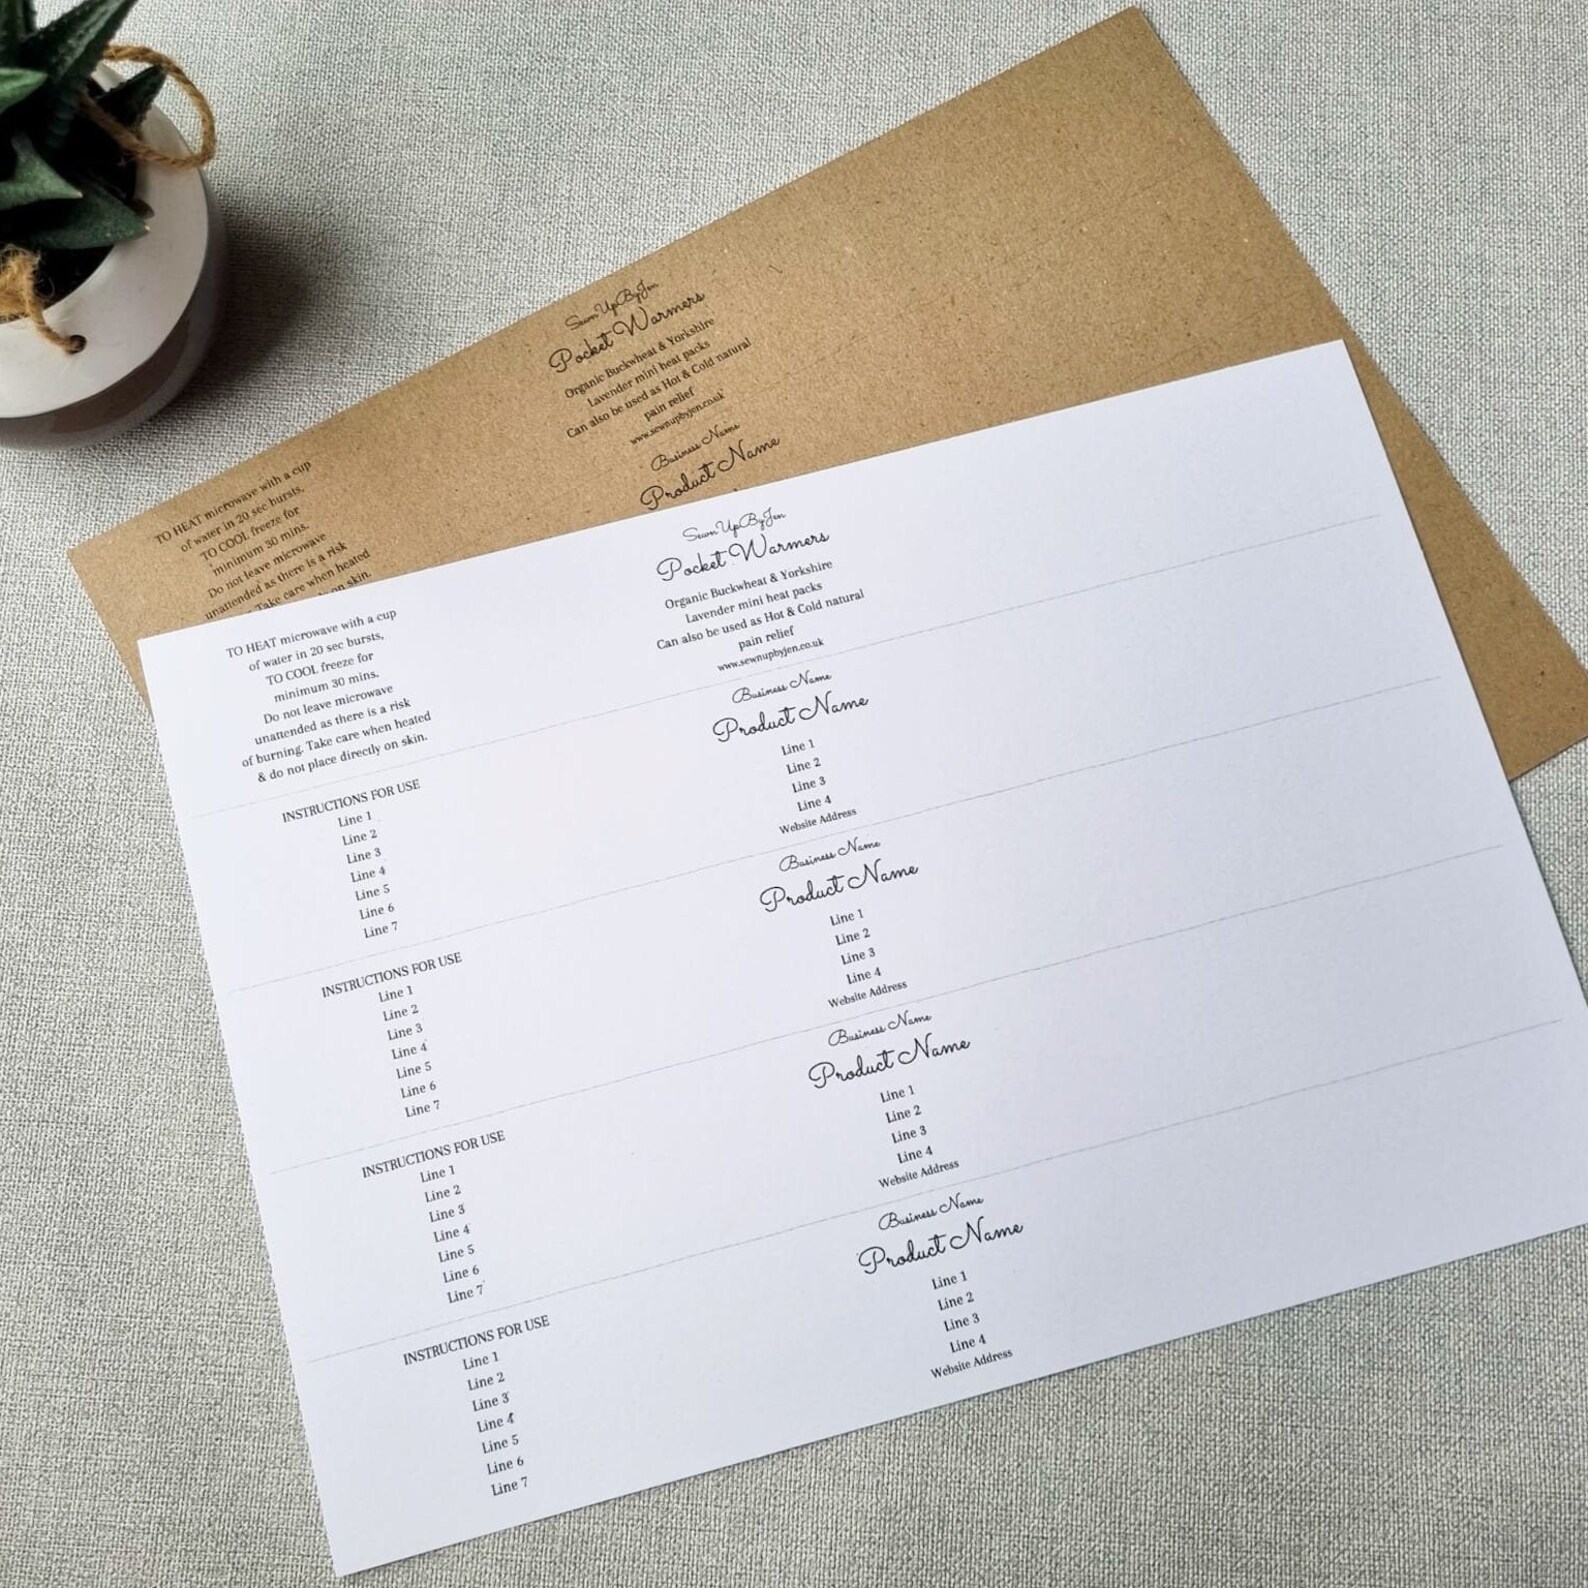 SewnUpByJen
Pocket Warmers
Organic Buckwheat & Yorkshire
Lavender mini heat packs
Can also be used as Hot & Cold natural
pain relief
www.sewnupbyjen.co.uk
Business Name
Product Name
TO HEAT microwave with a cup
of water in 20 sec bursts,
TO COOL freeze for
minimum 30 mins.
Do not leave microwave
unattended as there is a risk
Take care when heated
on skin.
SewnUpByJen
Pocket Warmers
Organic Buckwheat & Yorkshire
Lavender mini heat packs
Can also be used as Hot & Cold natural
pain relief
www.sewnupbyjen.co.uk
TO HEAT microwave with a cup
of water in 20 sec bursts,
TO COOL freeze for
minimum 30 mins.
Do not leave microwave
unattended as there is a risk
of burning. Take care when heated
& do not place directly on skin.
Business Name
Product Name
Line 1
Line 2
Line 3
Line 4
Website Address
INSTRUCTIONS FOR USE
Line 1
Line 2
Line 3
Line 4
Line 5
Line 6
Line 7
Business Name
Product Name
Line 1
Line 2
Line 3
Line 4
Website Address
INSTRUCTIONS FOR USE
Line 1
Line 2
Line 3
Line 4
Line 5
Line 6
Line 7
Business Name
Product Name
Line 1
Line 2
Line 3
Line 4
Website Address
INSTRUCTIONS FOR USE
Line 1
Line 2
Line 3
Line 4
Line 5
Line 6
Line 7
Business Name
Product Name
Line 1
Line 2
Line 3
Line 4
Website Address
INSTRUCTIONS FOR USE
Line 1
Line 2
Line 3
Line 4
Line 5
Line 6
Line 7